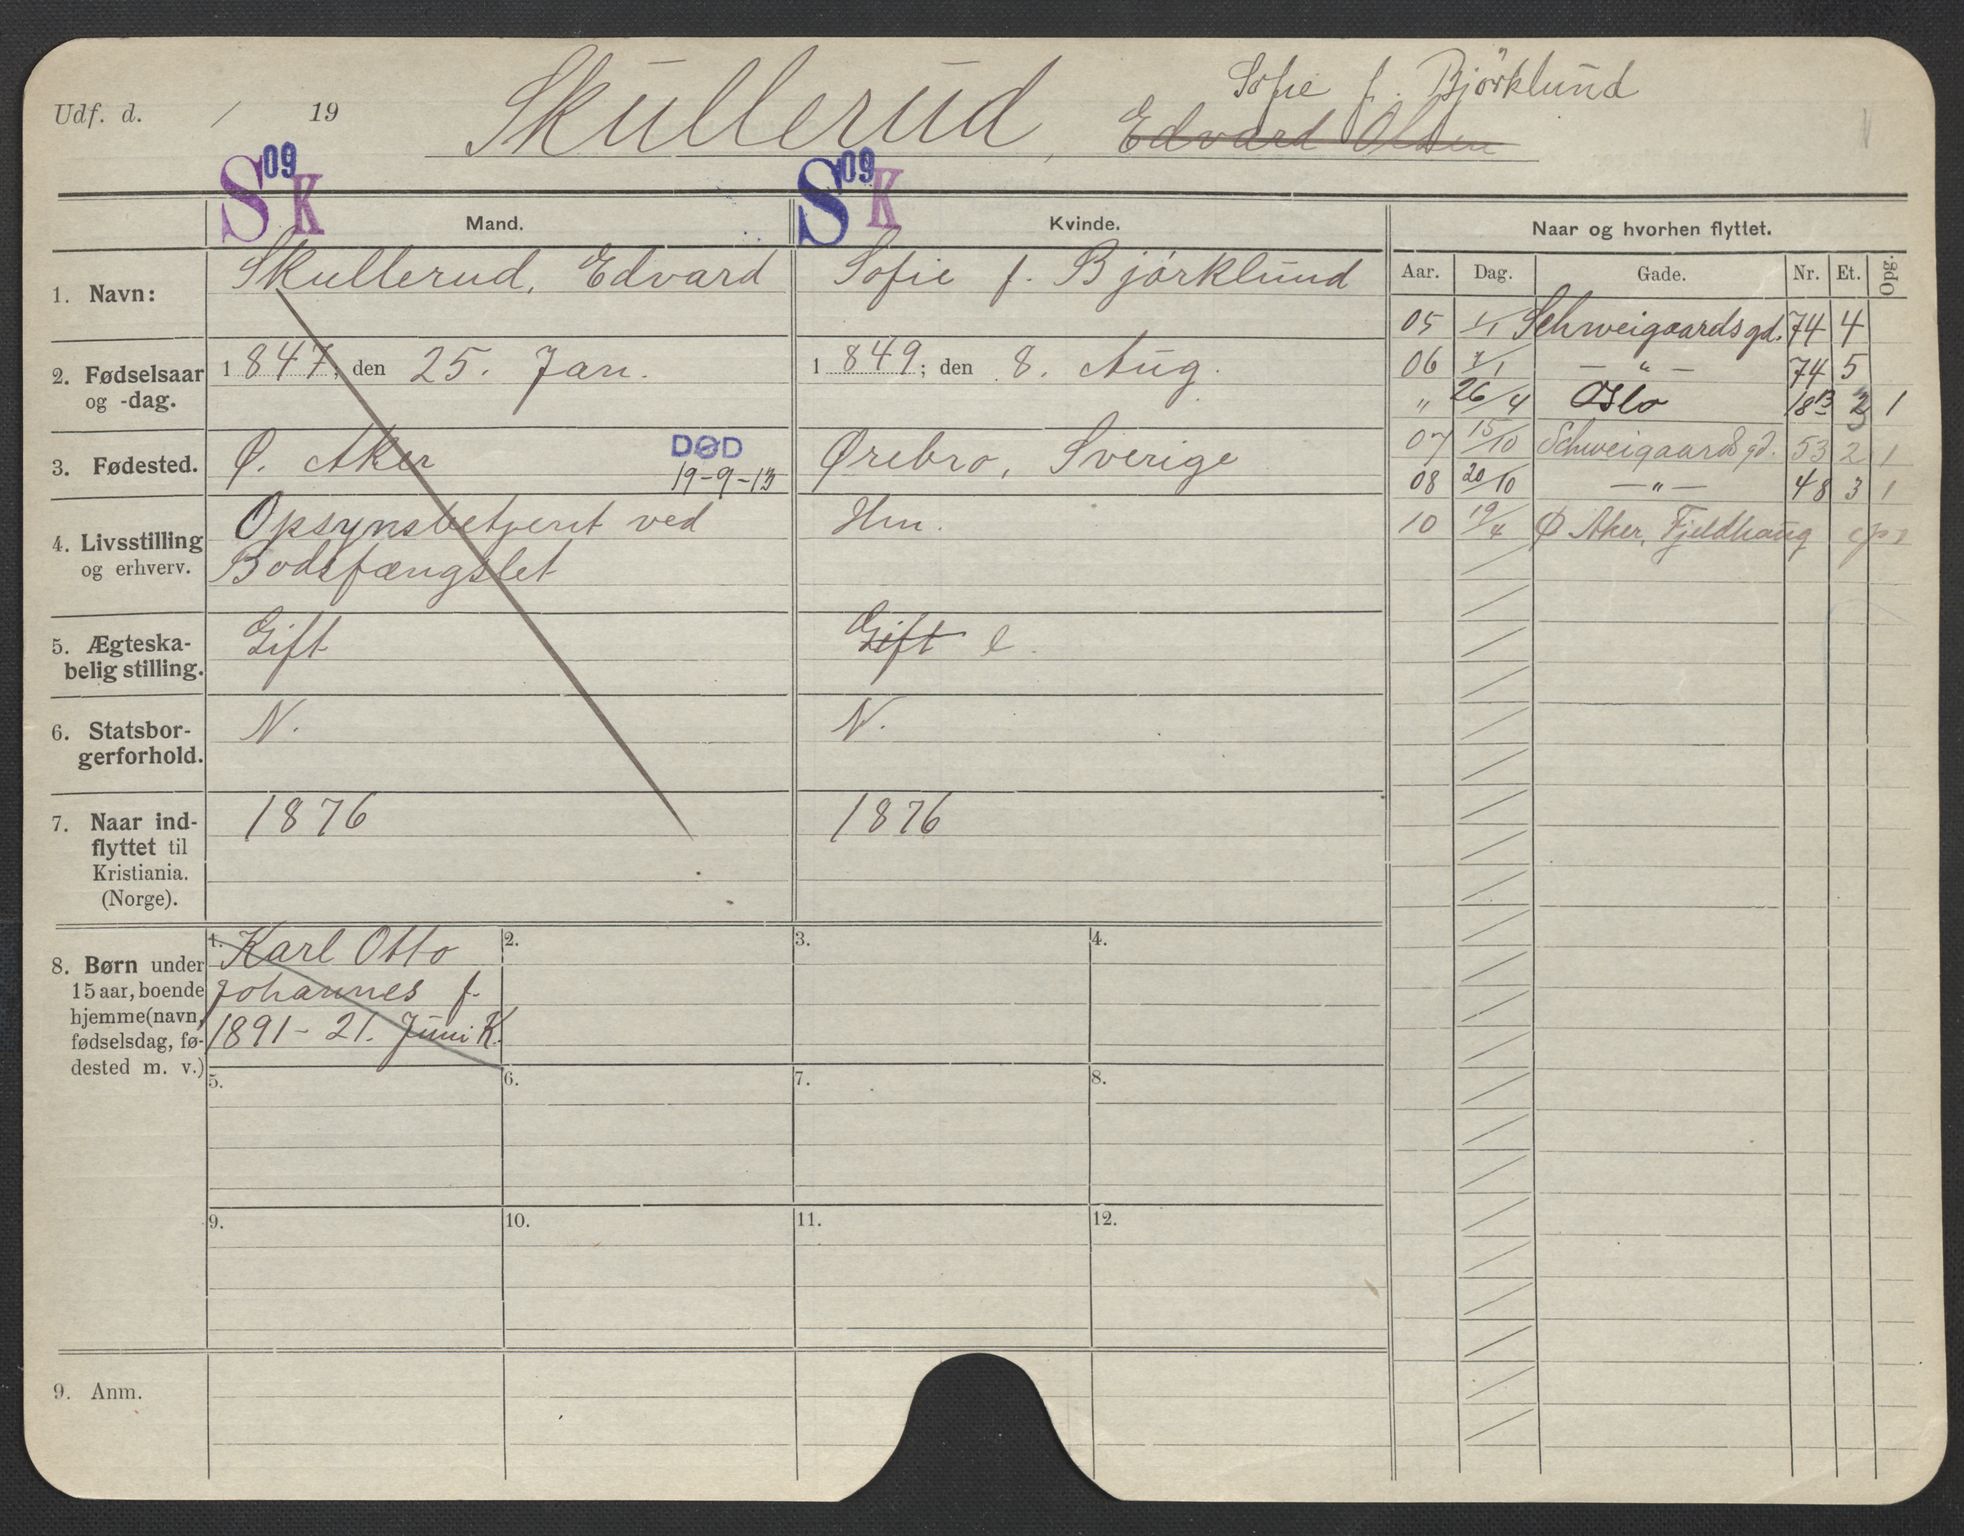 Sofie f. Björklund
Udf. d. / 19 Skullerud, Edvard Olsen
S 09 K S 09 K
Mand. Kvinde. Naar og hvorhen flyttet.
Aar. Dag. Gade. Nr. Et. Opg.
1. Navn: Skullerud, Edvard Sofie f. Bjørklund
05 1/1 Schweigaardsgd. 74 4
2. Fødselsaar og -dag. 1847; den 25. Jan. 1849; den 8. Aug.
06 1/1 — " — 74 5
" 26/4 Oslo 18B 3 1
3. Fødested. Ø. Aker DØD 19-9-13 Ørebro, Sverige
07 15/10 Schweigaardsgd. 53 2 1
08 20/10 — " — 48 3 1
4. Livsstilling og erhverv. Opsynsbetjent ved Hm.
Bodsfængslet
10 19/4 Ø Aker, Fjeldhaug
5. Ægteska-
belig stilling. Gift Gift e.
6. Statsbor-
gerforhold. N. N.
7. Naar ind-
flyttet til
Kristiania.
(Norge). 1876 1876
8. Børn under
15 aar, boende
hjemme (navn,
fødselsdag, fø-
dested m. v.)
1. Karl Otto
Johannes f.
1891 - 21. Juni K.
2. 3. 4.
5. 6. 7. 8.
9. 10. 11. 12.
9. Anm.